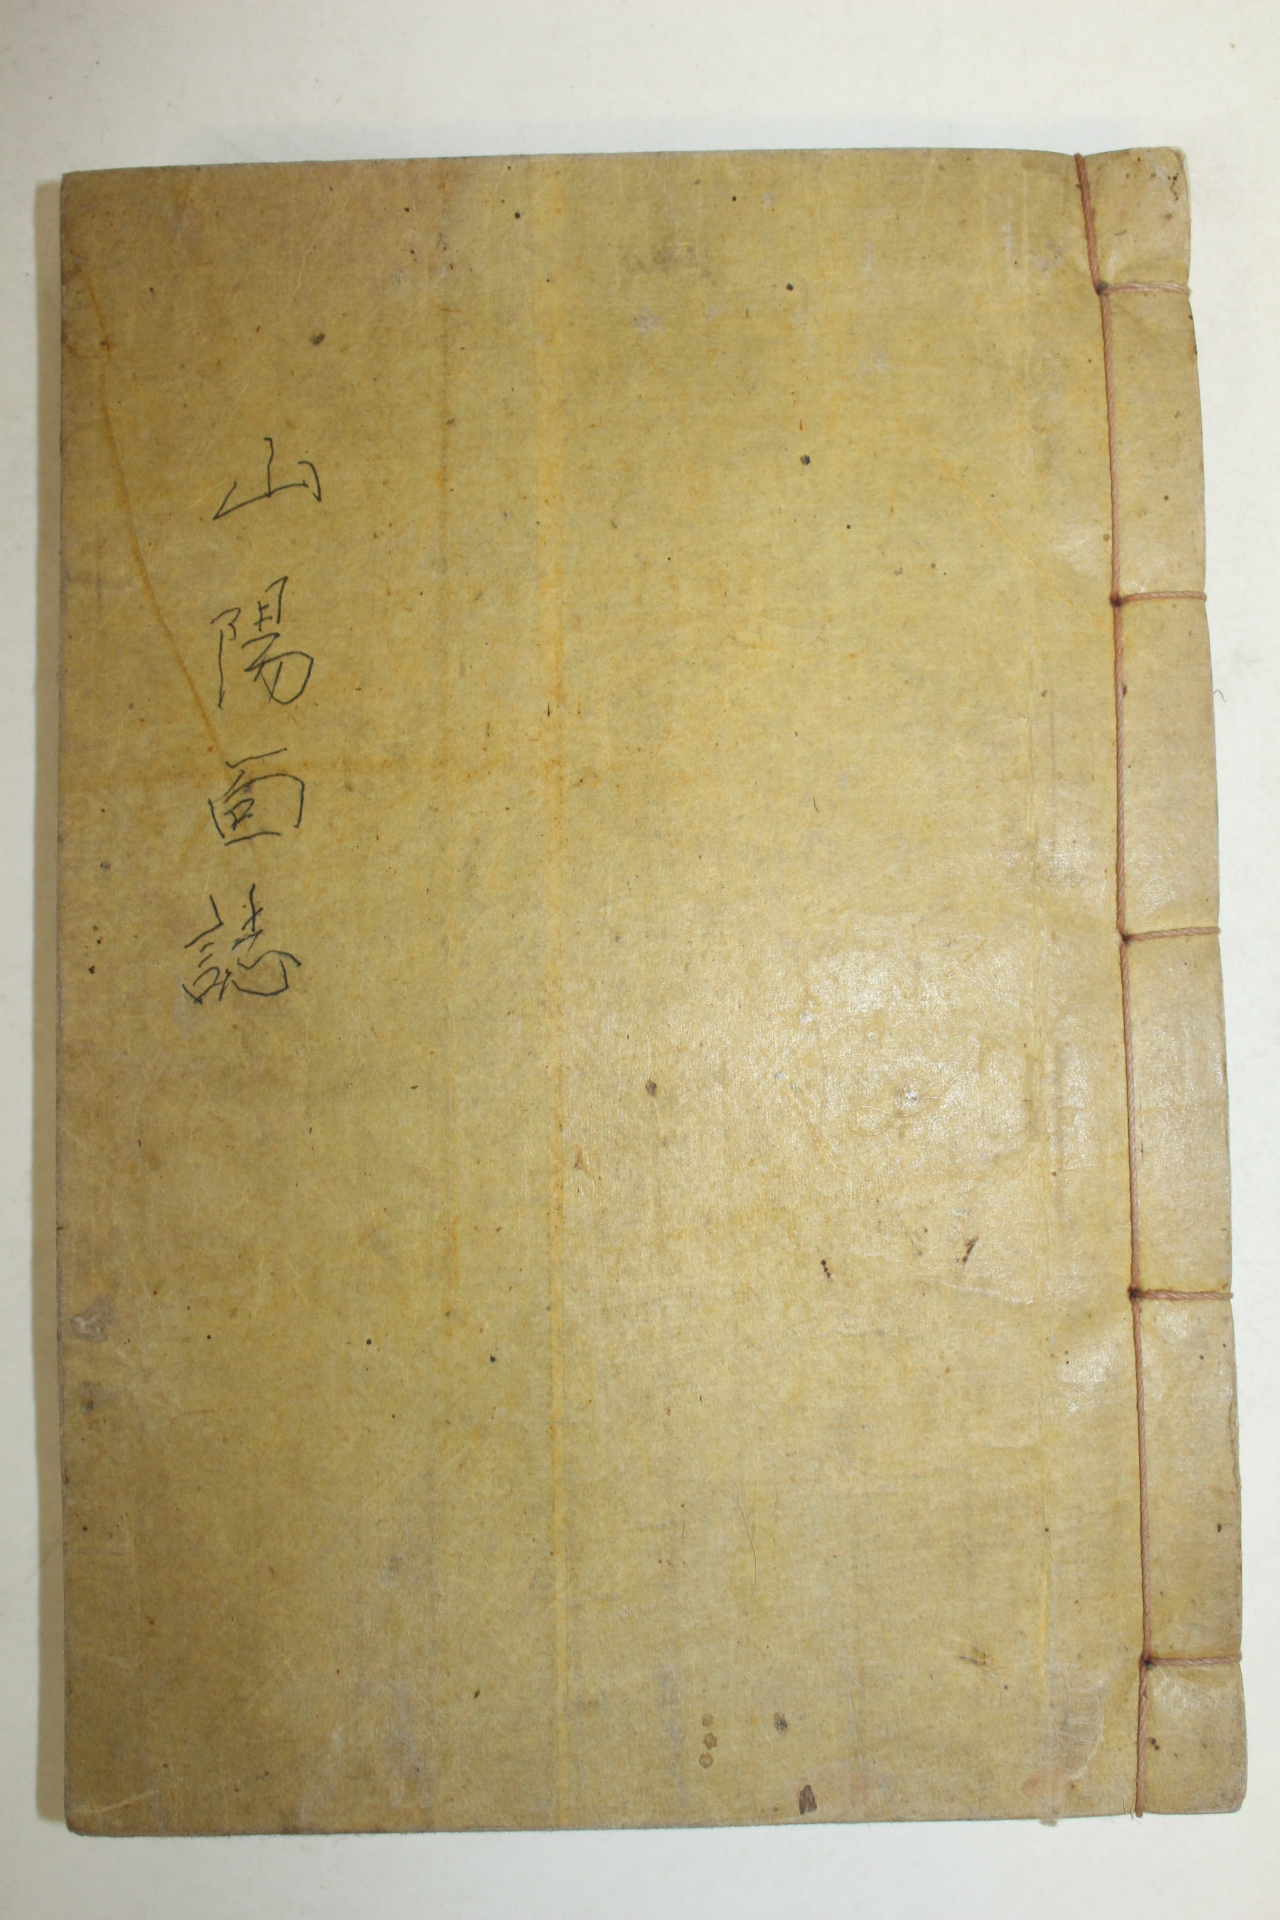 山陽面誌